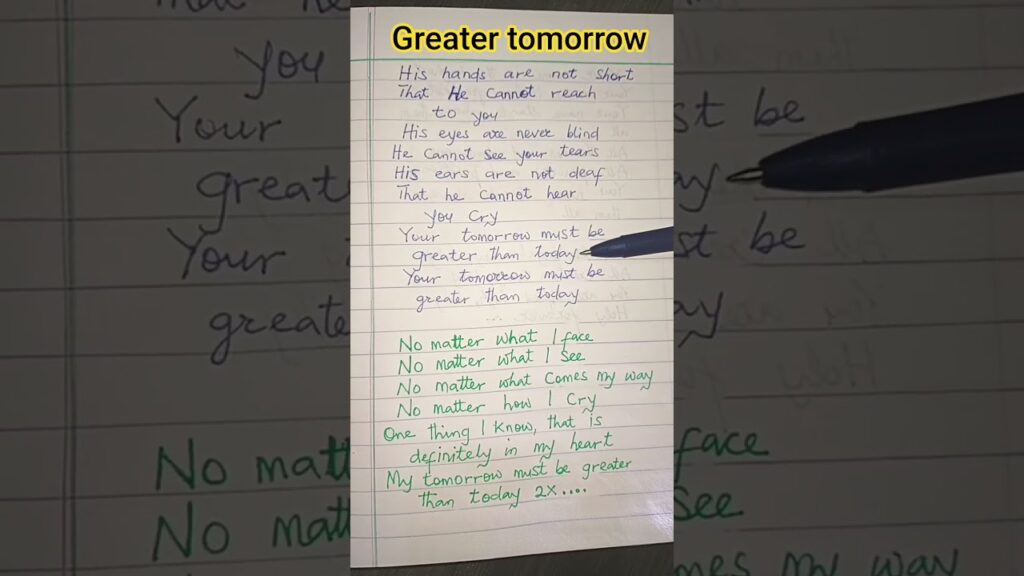 Greater tomorrow
His hands are not short
That He Cannot reach
to you
His eyes are never blind
He Cannot see your tears
His ears are not deaf
That he Cannot hear
you Cry
Your tomorrow must be
greater than today
Your tomorrow must be
greater than today
....
No matter what I face
No matter what I see
No matter what Comes my way
No matter how I Cry
One thing I know, that is
definitely in my heart
My tomorrow must be greater
than today 2x....